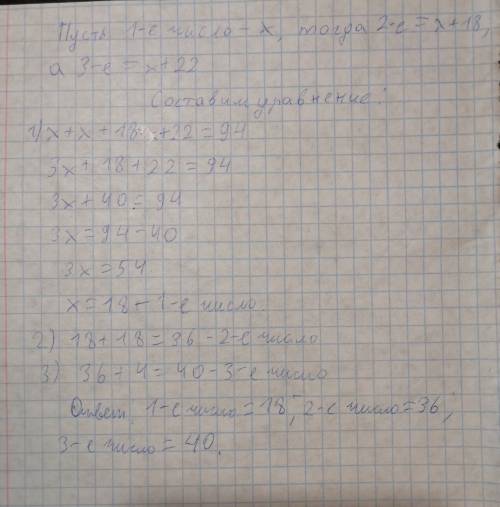 Пусть 1-е число - x, тогда 2-е = x+18,
а 3-е = x+22
Составим уравнение:
1) x+x+18+x+22=94
3x+18+22=94
3x+40=94
3x=94-40
3x=54
x=18 - 1-е число.
2) 18+18=36 - 2-е число
3) 36+4=40 - 3-е число
Ответ: 1-е число=18; 2-е число=36;
3-е число=40.